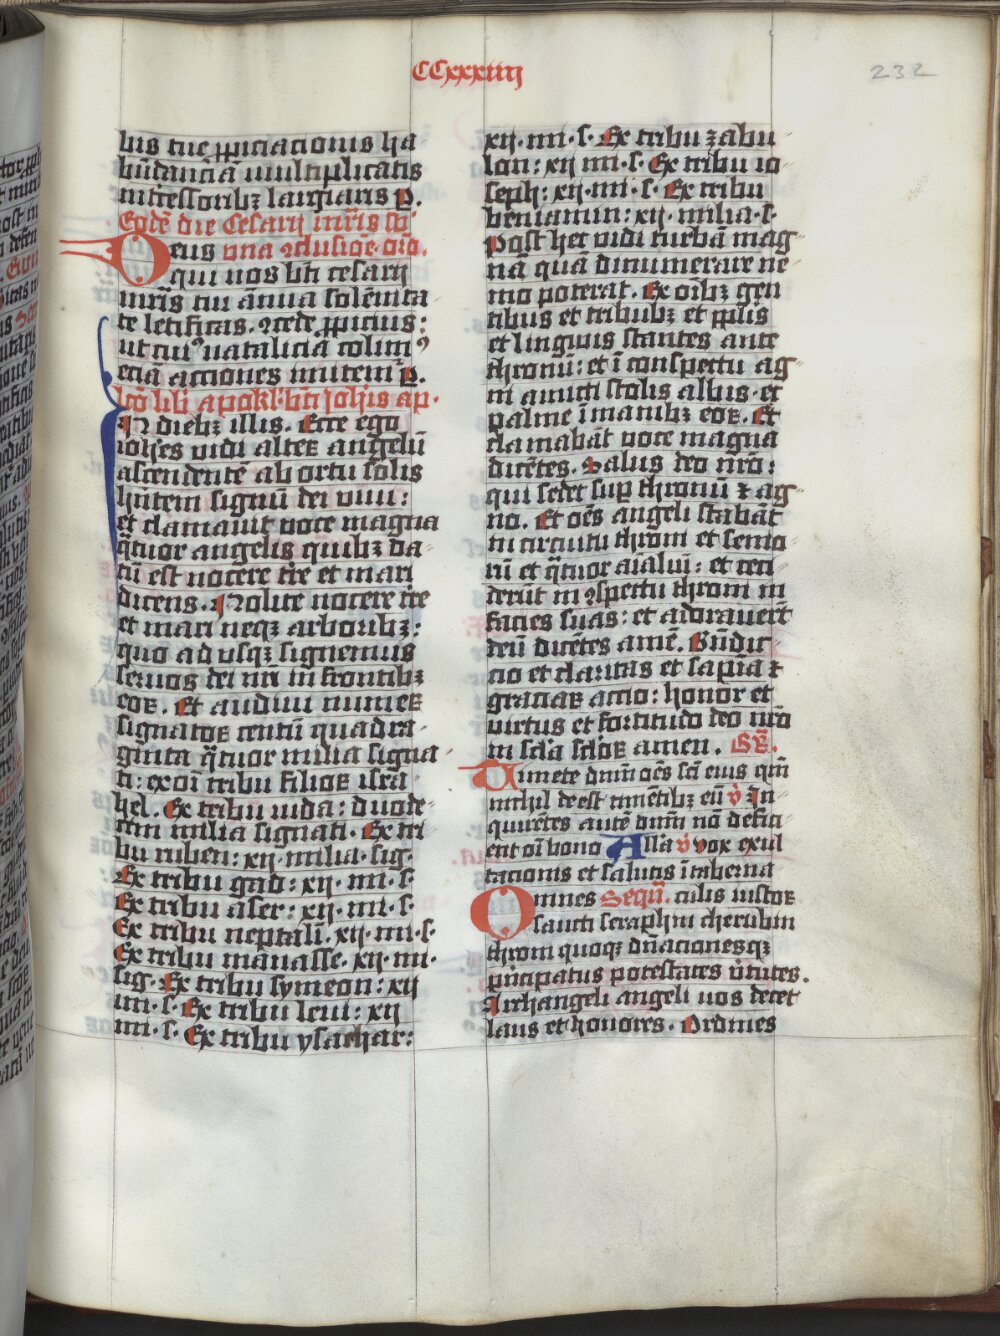 CCxxxiiij
232
bis tue ꝓpiciacionis ha
būdanciā multiplicatis
intercessoribꝫ largiaris P.
Eodē die Cesarij mr̄is
Deus vna ꝯclusiōe orō.
qui nos bt̄i cesarij
mr̄is tui ānua solēnita
te letificas. ꝯcede ꝓpicius:
ut cuiꝰ natalicia colimꝰ
eciā acciones imitemꝰ P.
lcō libͥ apokl̓. bt̄i Joh̄is ap.
In diebꝫ illis. Ecce ego
ioh̄es vidi alteꝝ angelū
ascendentē ab ortu solis
hn̄tem signū dei viui:
et clamauit voce magna
q̄tuor angelis quibꝫ da
tū est nocere tr̄e et mari
dicens. Nolite nocere tr̄e
et mari neqꝫ arboribꝫ:
quo ad usqꝫ signemus
seruos dei nr̄i in frontibꝫ
eoꝝ. Et audiui numeꝝ
signatoꝝ centū quadra
ginta q̄tuor milia signa
ti: ex oī tribu filioꝝ isrā
hel. Ex tribu iuda: duode
cim milia signati. Ex tri
bu ruben: xij milia. sig.
Ex tribu gad: xij. mi. s.
Ex tribu aser: xij. mi. s.
Ex tribu neptalī. xij. mi. s.
Ex tribu manasse. xij. mi.
sig. Ex tribu symeon: xij
mi. s. Ex tribu leui: xij
mi. s. Ex tribu ysachar:
xij. mi. s. Ex tribu zabu
lon: xij mi. s. Ex tribu io
seph: xij. mi. s. Ex tribu
beniamin: xij. milia. s.
Post hec vidi turbā mag
nā quā dinumerare ne
mo poterat. Ex oībꝫ gen
tibus et tribubꝫ et ppl̄is
et linguis stantes ante
thronū: et ī conspectu ag
ni amicti stolis albis. et
palme ī manibꝫ eoꝝ. Et
clamabāt voce magna
dicētes. Salus deo nr̄o:
qui sedet suꝑ thronū ⁊ ag
no. Et oēs angeli stabāt
in circuitu throni et senio
rū et q̄tuor aīaliū: et ceci
derūt in ꝯspectu throni in
facies suas: et adorauerūt
deū dicētes amē. Bn̄dic
cio et claritas et sapīa ⁊
graciaꝝ accio: honor et
virtus et fortitudo deo nr̄o
in scl̄a scl̄oꝝ amen. Gꝝ.
Timete dnm̄ oēs scī eius qm̄
nichil deest timētibꝫ eū v̊ In
quirētes autē dnm̄ nō defici
ent oī bono Alla v̊ vox exul
tacionis et salutis ī taberna
Omnes Seqū. culis iustoꝝ
sancti seraphin cherubin
throni quoqꝫ dn̄acionesqꝫ
principatus potestates v̄tutes.
Archangeli angeli vos decet
laus et honores. Ordines